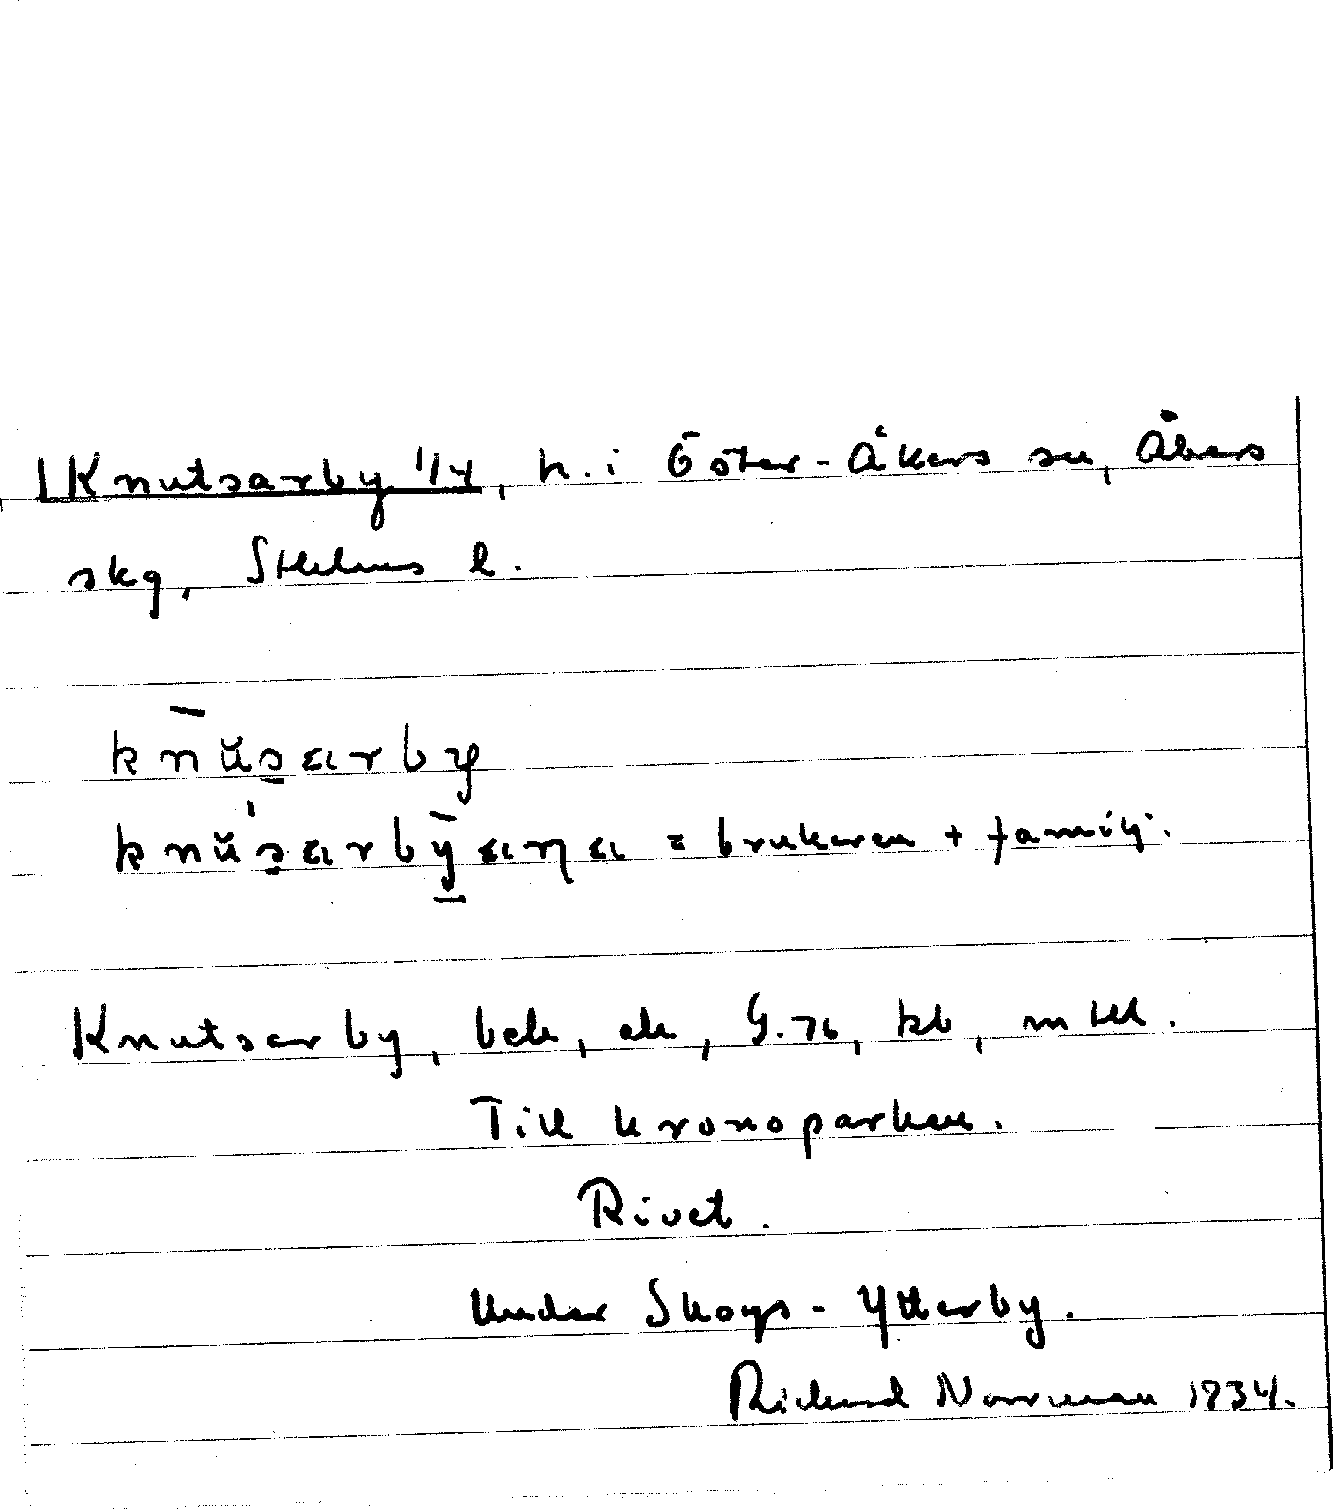 Knutsarby 1/4, h. i Öster-Åkers sn, Åkers
skg, Sthlms l.
knŭs̱arby
knŭ's̱arbȳaŋa = brukaren + familj.
Knutsarby, bck, ek, G. 76, kb, mtll.
Till kronoparken.
Rivet.
Under Skogs-Ytterby.
Rickard Norrman 1934.